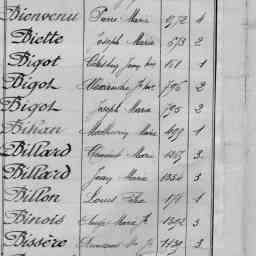 Bienvenu Pierre Marie 972 4
Biette Joseph Marie 573 2
Bigot 151 1
Bigot Alexandre 796 2
Bigot Joseph Marie 795 2
Bihan Mathurin Marie 499 1
Billard Marie 3
Billard Jean Marie 1354 3
Billon Louis 1
Binois Marie 1302 3
Bissère 1139 3